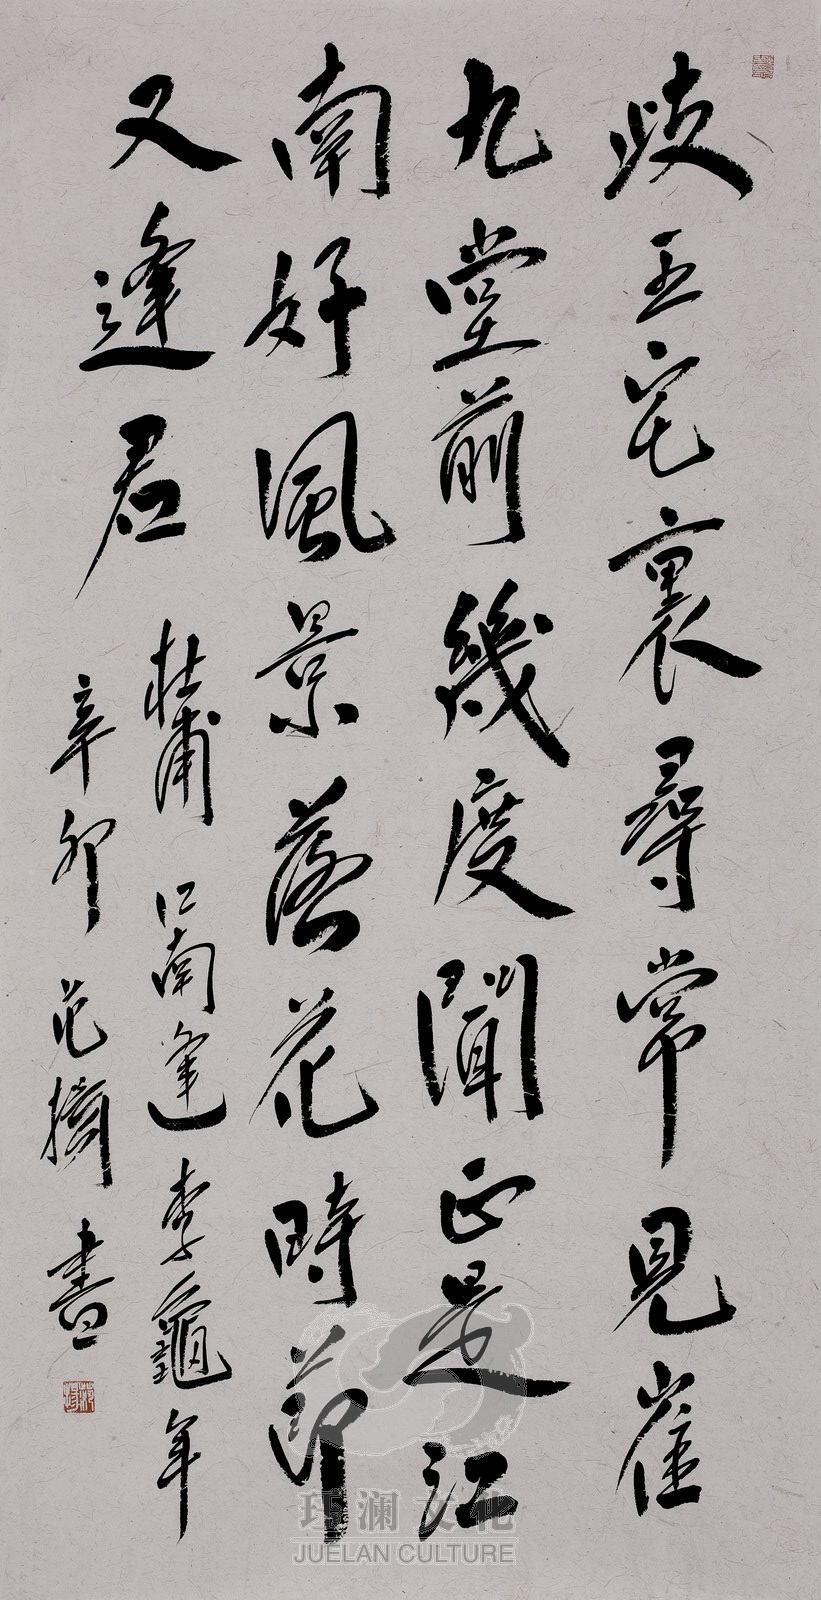 歧王宅裏尋常見崔
九堂前幾度聞正是江
南好風景落花時節
又逢君
杜甫 江南逢李龜年
辛卯 范 書
澜文化
JUELAN CULTURE